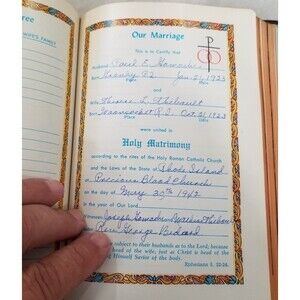 ree
WIFE'S FAMILY
Our Marriage
This is to Certify that
Husband Paul E.
Born Jan. 21, 1923
Place Date
and
Wife Theresa L. Thibeault
Born Woonsocket R.I. Oct. 21, 1923
Place Date
were united in
Holy Matrimony
according to the rites of the Holy Roman Catholic Church
and the Laws of the State of Rhode Island
at Precious Blood Church
on the day of May 30th 1942
in the year of Our Lord
Witnesses Joseph
Rev. George Bedard
subject to their husbands as to the Lord; because
head of the wife, just as Christ is head of the
being Himself Savior of the body.
Ephesians 5, 22-24.